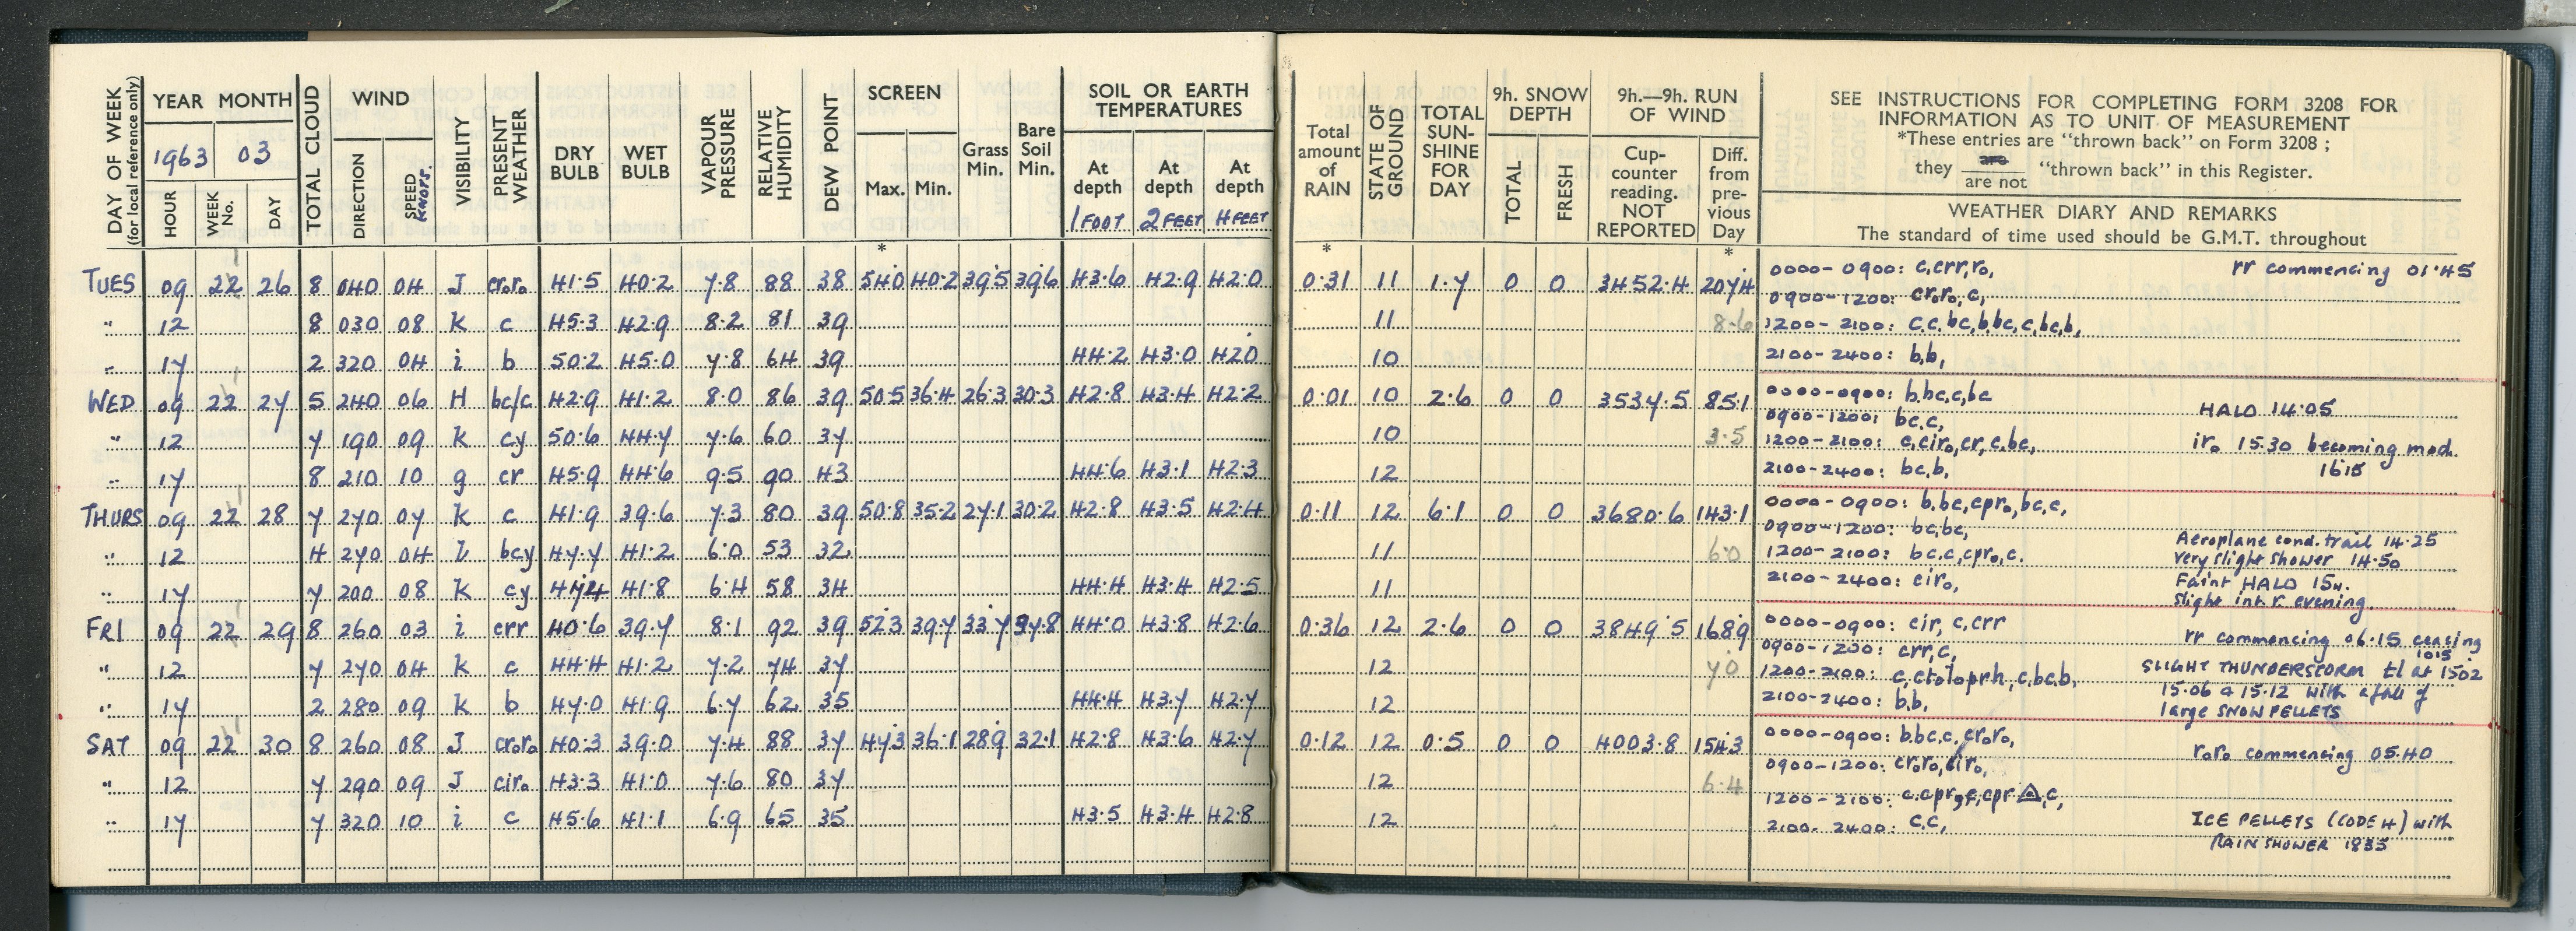 DAY OF WEEK
(for local reference only)
YEAR MONTH
1963 03
HOUR
WEEK No.
DAY
TOTAL CLOUD
WIND
DIRECTION
SPEED
Knots.
VISIBILITY
PRESENT WEATHER
DRY BULB
WET BULB
VAPOUR PRESSURE
RELATIVE HUMIDITY
DEW POINT
SCREEN
Max. Min.
*
Grass Min.
Bare Soil Min.
SOIL OR EARTH
TEMPERATURES
At depth At depth At depth
1 FOOT 2 FEET 4 FEET
Total amount of RAIN
*
STATE OF GROUND
TOTAL SUN-SHINE FOR DAY
9h. SNOW DEPTH
TOTAL
FRESH
9h.—9h. RUN OF WIND
Cup-counter reading. NOT REPORTED
Diff. from pre-vious Day
*
SEE INSTRUCTIONS FOR COMPLETING FORM 3208 FOR
INFORMATION AS TO UNIT OF MEASUREMENT
*These entries are "thrown back" on Form 3208 ;
they are / are not "thrown back" in this Register.
WEATHER DIARY AND REMARKS
The standard of time used should be G.M.T. throughout
TUES 09 22 26 8 040 04 J cr₀r₀ 41.5 40.2 7.8 88 38 54.0 40.2 39.5 39.6 43.6 42.9 42.0 0.31 11 1.7 0 0 3452.4 207.4
0000-0900: c,crr,r₀, rr commencing 01.45
0900-1200: cr₀r₀, c,
" 12 8 030 08 K c 45.3 42.9 8.2 81 39 11 8.6
1200-2100: c.c.bc,b,bc,c,bc,b,
" 17 2 320 04 i b 50.2 45.0 7.8 64 39 44.2 43.0 42.0 10
2100-2400: b,b,
WED 09 22 27 5 240 06 H bc/c 42.9 41.2 8.0 86 39 50.5 36.4 26.3 30.3 42.8 43.4 42.2 0.01 10 2.6 0 0 3537.5 85.1
0000-0900: b,bc,c,bc
0900-1200: bc,c, HALO 14.05
" 12 7 190 09 K cy 50.6 44.7 7.6 60 37 10 3.5
1200-2100: c,cir₀,cr,c,bc, ir₀ 15.30 becoming mod. 1615
" 17 8 210 10 g cr 45.9 44.6 9.5 90 43 44.6 43.1 42.3 12
2100-2400: bc,b,
THURS 09 22 28 7 270 07 K c 41.9 39.6 7.3 80 39 50.8 35.2 27.1 30.2 42.8 43.5 42.4 0.11 12 6.1 0 0 3680.6 143.1
0000-0900: b,bc,cpr₀,bc,c,
0900-1200: bc,bc,
" 12 4 270 04 bcy 47.7 41.2 6.0 53 32 11 6.0
1200-2100: bc,c,cpr₀,c. Aeroplane cond. trail 14.25
Very slight shower 14.50
" 17 7 200 08 K cy 41.8 6.4 58 34 44.4 43.4 42.5 11
2100-2400: cir₀, Faint HALO 15H.
Slight int r. evening.
FRI 09 22 29 8 260 03 i crr 40.6 39.7 8.1 92 39 52.3 39.7 33.7 44.0 43.8 42.6 0.36 12 2.6 0 0 3849.5 168.9
0000-0900: cir, c,crr
0900-1200: crr,c, rr commencing 06.15 ceasing 1015
" 12 7 270 04 K c 44.4 41.2 7.2 74 37 12 7.0
1200-2100: c,ct₀l₀prh,c,bc,b, SLIGHT THUNDERSTORM tl at 1502
15.06 & 15.12 with a fall of
" 17 2 280 09 K b 47.0 41.9 6.7 62 35 44.4 43.7 42.7 12
2100-2400: b,b, large SNOW PELLETS
SAT 09 22 30 8 260 08 J cr₀r₀ 40.3 39.0 7.4 88 37 47.3 36.1 28.9 32.1 42.8 43.6 42.7 0.12 12 0.5 0 0 4003.8 154.3
0000-0900: b,bc,c,cr₀r₀, r₀r₀ commencing 05.40
0900-1200: cr₀r₀,cir₀,
" 12 7 290 09 J cir₀ 43.3 41.0 7.6 80 37 12 6.4
1200-2100: c,cpr₀,c,cpr △,c,
" 17 7 320 10 i c 45.6 41.1 6.9 65 35 43.5 43.4 42.8 12
2100-2400: c.c, ICE PELLETS (CODE 4) with
RAIN SHOWER 1835